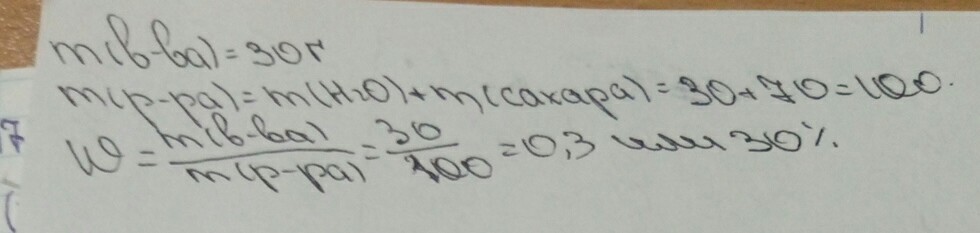 m(в-ва)=30г
m(р-ра)=m(H2O)+m(сахара)=30+70=100.
W=m(в-ва)/m(р-ра)=30/100=0,3 или 30%.
7